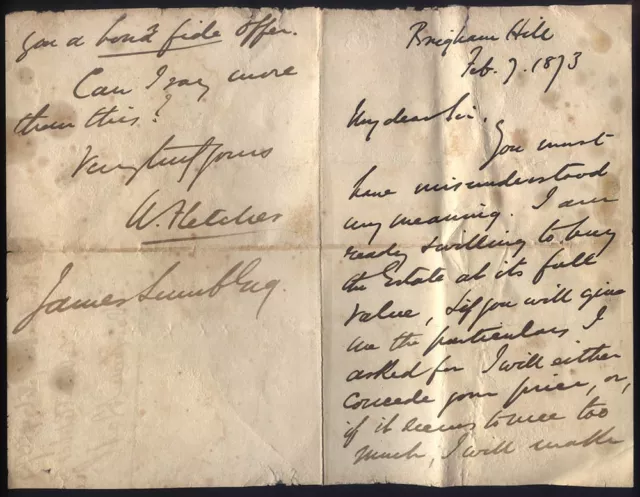 Brigham Hill
Feb. 7. 1873
My dear Sir.
You must
have misunderstood
my meaning. I am
ready & willing to buy
the Estate at its full
value, & if you will give
me the particulars I
asked for I will either
concede your price, or,
if it seems to me too
much, I will make
you a bonâ fide offer.
Can I say more
than this?
Very truly yours
W. Fletcher
James Lumb Esq.